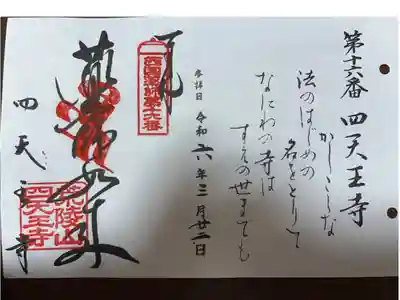 第十六番 四天王寺
かしこしな
法のはじめの
名をとりて
なにわの寺は
すえの世までも
参拝日 令和六年三月廿二日
奉拝
西国薬師第十六番
薬師如来
四天王寺
荒陵山
四天王寺